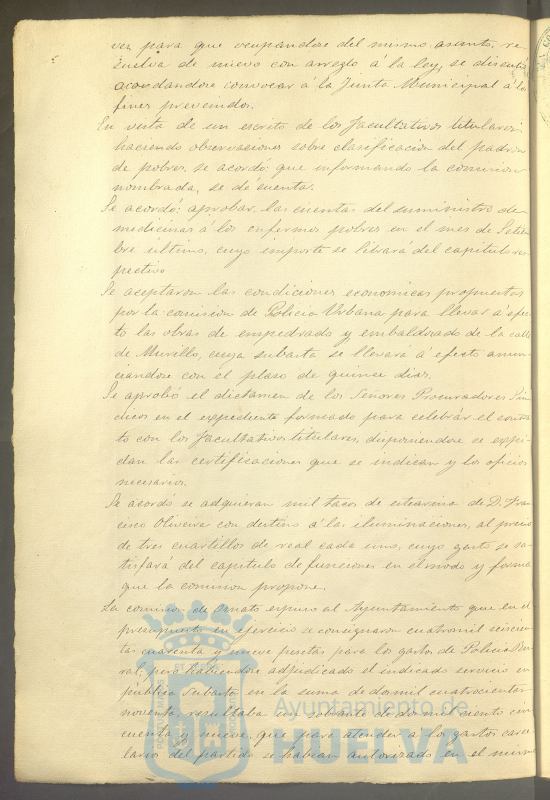 vea para que ocupandose del mismo asunto, re
suelva de nuevo con arreglo á la ley, se discutió
acordandose convocar á la Junta Municipal á los
fines prevenidos.
En vista de un escrito de los Facultativos titulares
haciendo observaciones sobre clasificacion del padron
de pobres, se acordó: que informando la comision
nombrada, se dé cuenta.
Se acordó: aprobar las cuentas del suministro de
medicinas á los enfermos pobres en el mes de Setiem
bre último, cuyo importe se librará del capitulo res
pectivo
Se aceptaron las condiciones economicas propuestas
por la comision de Policia Urbana para llevar á efec
to las obras de empedrado y embaldosado de la calle
de Murillo, cuya subasta se llevará á efecto anun
ciandose con el plazo de quince dias.
Se aprobó el dictamen de los Señores Procuradores Sin
dicos en el expediente formado para celebrar el contra
to con los Facultativos titulares, disponiendose se expi
dan las certificaciones que se indican y los oficios
necesarios.
Se acordó se adquieran mil tacos de estearina de D. Fran
cisco Oliveira con destino á las iluminaciones, al precio
de tres cuartillos de real cada uno, cuyo gasto se sa
tisfará del capitulo de funciones en el modo y forma
que la comision propone.
La comision de Ornato expuso al Ayuntamiento que en el
presupuesto en ejercicio se consignaron cuatro mil seiscien
tas cuarenta y nueve pesetas para los gastos de Policia Ru
ral; pero habiendose adjudicado el indicado servicio en
pública subasta en la suma de dos mil cuatrocientas
noventa, resultaba un sobrante de dos mil ciento cin
cuenta y nueve, que para atender á los gastos carce
larios del partido se habian autorizado en el mismo
Ayuntamiento de
HUELVA